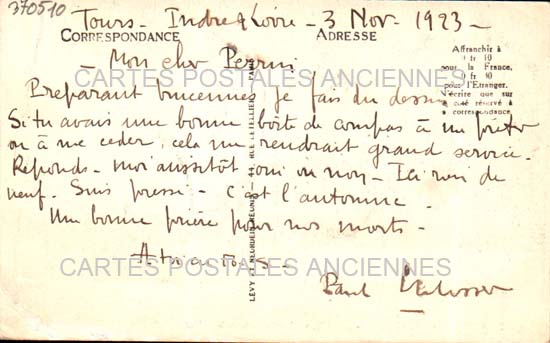 370510
Tours - Indre & Loire - 3 Nov. 1923 -
CORRESPONDANCE
ADRESSE
- Mon cher
Affranchir à
0 fr 10
pour la France,
0 fr 40
pour l'Etranger.
N'écrire que sur
le côté réservé à
la correspondance
CARTES POSTALES ANCIENNES
Préparant Vincennes je fais du dessin
Si tu avais une bonne boîte de compas à me prêter
ou à me céder, cela me rendrait grand service.
Réponds-moi aussitôt oui ou non - Ici rien de
neuf. Suis pressé - c'est l'automne.
Une bonne prière pour nos morts -
A toi
CARTES POSTALES ANCIENNES
Paul
LÉVY & NEURDEIN RÉUNIS, 44, RUE LETELLIER, PARIS